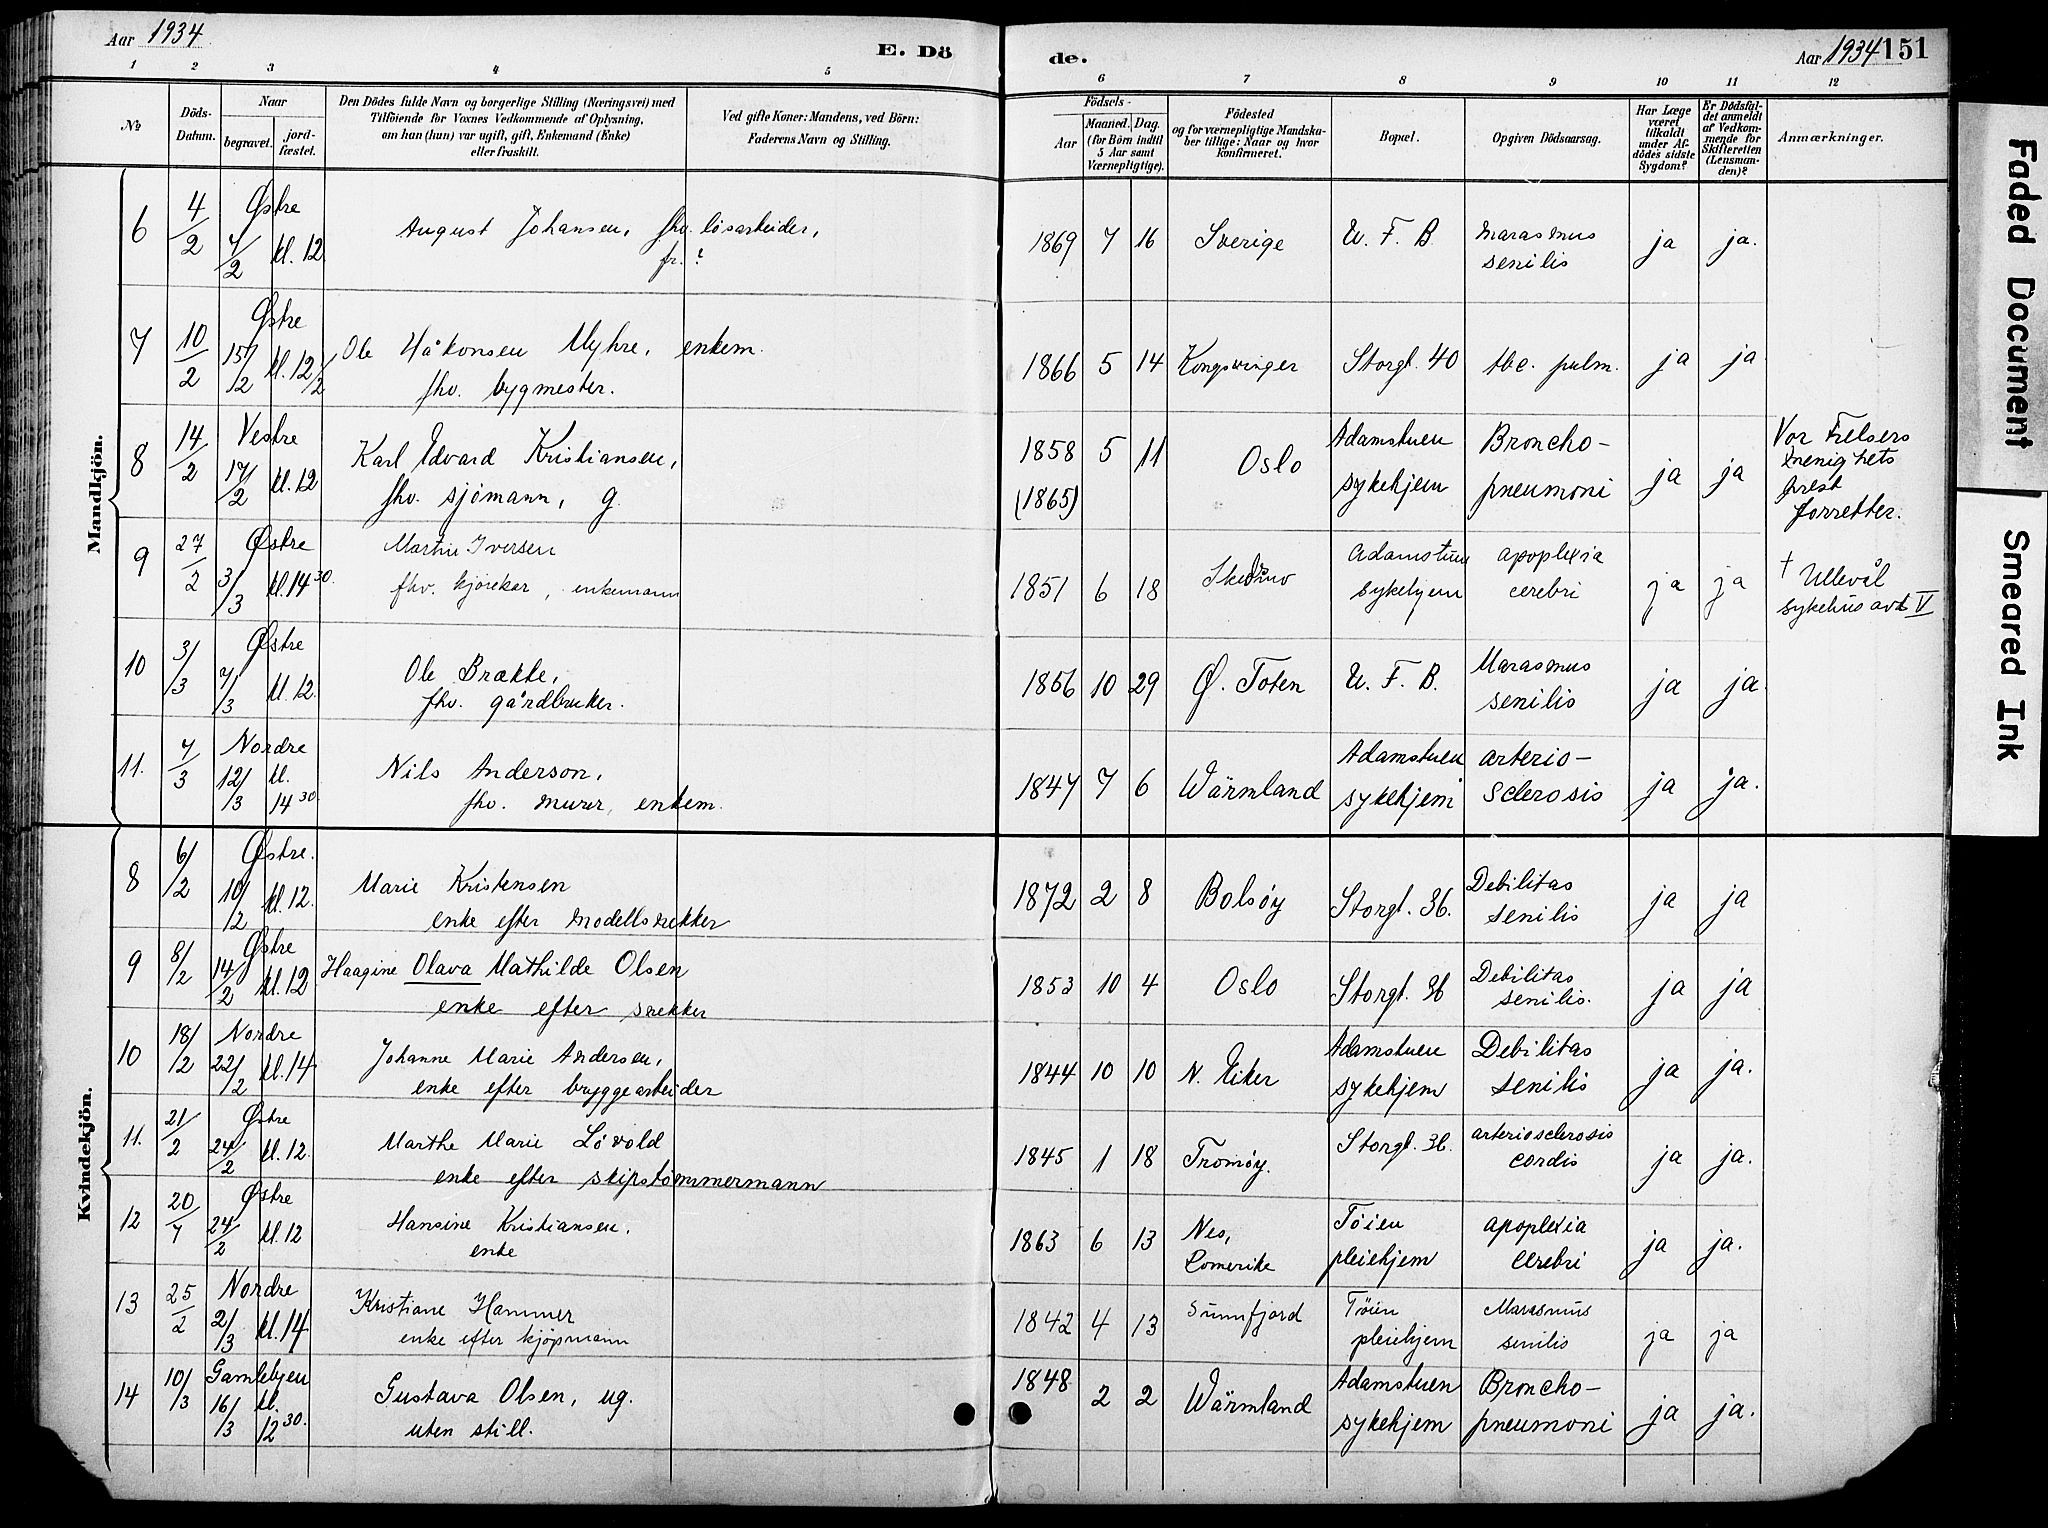 Aar 1934
E. Dö
de.
Aar 1934 151
1 2 3 4 5 6 7 8 9 10 11 12
№
Döds-
Datum.
Naar
begravet.
jord-
fæstet.
Den Dödes fulde Navn og borgerlige Stilling (Næringsvei) med
Tilföiende for Voxnes Vedkommende af Oplysning,
om han (hun) var ugift, gift, Enkemand (Enke)
eller fraskilt.
Ved gifte Koner: Mandens, ved Börn:
Faderens Navn og Stilling.
Födsels-
Aar
Maaned. Dag.
(for Börn indtil
5 Aar samt
Værnepligtige).
Födested
og for værnepligtige Mandska-
ber tillige: Naar og hvor
konfirmeret.
Bopæl.
Opgiven Dödsaarsag.
Har Læge
været
tilkaldt
under Af-
dödes sidste
Sygdom?
Er Dödsfal-
det anmeldt
af Vedkom-
mende for
Skifteretten
(Lensman-
den)?
Anmærkninger.
Mandkjön.
6 4/2 Østre 7/2 kl. 12 August Johansen, fhv. løsarbeider, 1869 7 16 Sverige U. F. B. marasmus ja ja.
fr. ? senilis
7 10/2 Østre 15/2 kl. 12 1/2 Ole Håkonsen Myhre, enkem. 1866 5 14 Kongsvinger Storgt. 40 tbc. pulm. ja ja
fhv. bygmester.
8 14/2 Vestre 17/2 kl. 12 Karl Edvard Kristiansen, 1858 5 11 Oslo Adamstuen Broncho- ja ja Vor Frelsers
fhv. sjømann, g. (1865) sykehjem pneumoni menighets
prest
forretter.
9 27/2 Østre 3/3 kl. 14 30. Martin Iversen 1851 6 18 Adamstuen apoplexia ja ja † Ullevål
fhv. kjørekar, enkemann sykehjem cerebri sykehus avd V
10 3/3 Østre 7/3 kl. 12. Ole Brække, 1856 10 29 Ø. Toten U. F. B. Marasmus ja ja.
fhv. gårdbruker. senilis
11. 7/3 Nordre 12/3 kl. 14 30. Nils Anderson, 1847 7 6 Wärmland Adamstuen arterio- ja ja.
fhv. murer, enkem. sykehjem sclerosis
Kvindekjön.
8 6/2 Østre. 10/2 kl. 12. Marie Kristensen 1872 2 8 Bolsøy Storgt. 36. Debilitas ja ja
enke efter modellsnekker senilis
9 8/2 Østre 14/2 kl. 12 Haagine Olava Mathilde Olsen 1853 10 4 Oslo Storgt. 36 Debilitas ja ja
enke efter snekker senilis.
10 18/2 Nordre 22/2 kl. 14 Johanne Marie Andersen, 1844 10 10 N. Eiker Adamstuen Debilitas ja ja.
enke efter bryggearbeider sykehjem senilis
11. 21/2 Østre 24/2 kl. 12. Marthe Marie Løvold 1845 1 18 Tromøy. Storgt. 36. arteriosclerosis ja ja.
enke efter skipstømmermann cordis
12 20/7 Østre 24/2 kl. 12 Hansine Kristiansen, 1863 6 13 Nes, Tøien apoplexia ja ja.
enke Romerike pleiehjem cerebri
13 25/2 Nordre 2/3 kl. 14 Kristiane Hammer 1842 4 13 Sunnfjord Tøien Marasmus ja ja
enke efter kjøpmann pleiehjem senilis
14 10/3 Gamlebyen 16/3 kl. 12 30. Gustava Olsen, ug. 1848 2 2 Wärmland Adamstuen Broncho- ja ja.
uten still. sykehjem pneumoni
Faded Document
Smeared Ink